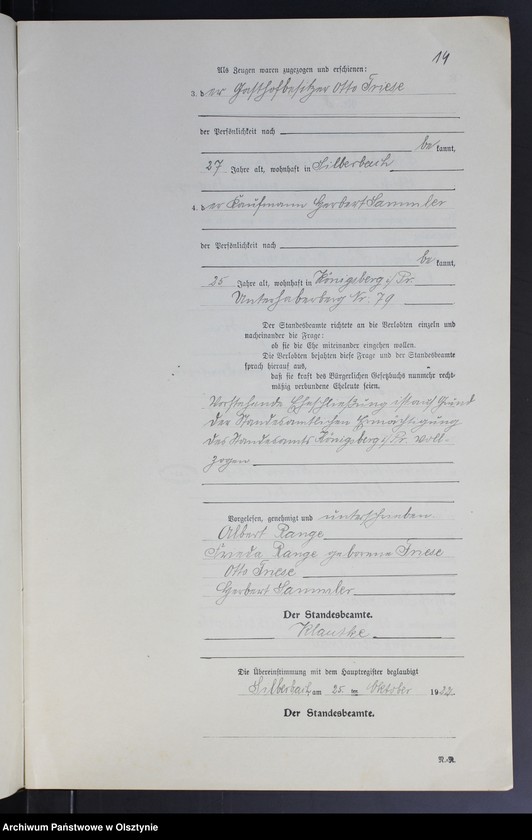 14
Als Zeugen waren zugezogen und erschienen:
3. der Gasthofbesitzer Otto Friese
der Persönlichkeit nach
be kannt,
27 Jahre alt, wohnhaft in Silberbach
4. der Kaufmann Herbert Sammler
der Persönlichkeit nach
be kannt,
25 Jahre alt, wohnhaft in Königsberg i/Pr.
Unterhaberberg Nr. 79
Der Standesbeamte richtete an die Verlobten einzeln und
nacheinander die Frage:
ob sie die Ehe miteinander eingehen wollen.
Die Verlobten bejahten diese Frage und der Standesbeamte
sprach hierauf aus,
daß sie kraft des Bürgerlichen Gesetzbuchs nunmehr recht-
mäßig verbundene Eheleute seien.
Vorstehende Eheschließung ist auf Grund
der Standesamtlichen Ermächtigung
des Standesamts Königsberg i/Pr. voll-
zogen
Vorgelesen, genehmigt und unterschrieben
Albert Range
Frieda Range geborene Friese
Otto Friese
Herbert Sammler
Der Standesbeamte.
Klautke
Die Übereinstimmung mit dem Hauptregister beglaubigt
Silberbach, am 25. ten Oktober 1922.
Der Standesbeamte.
Archiwum Państwowe w Olsztynie